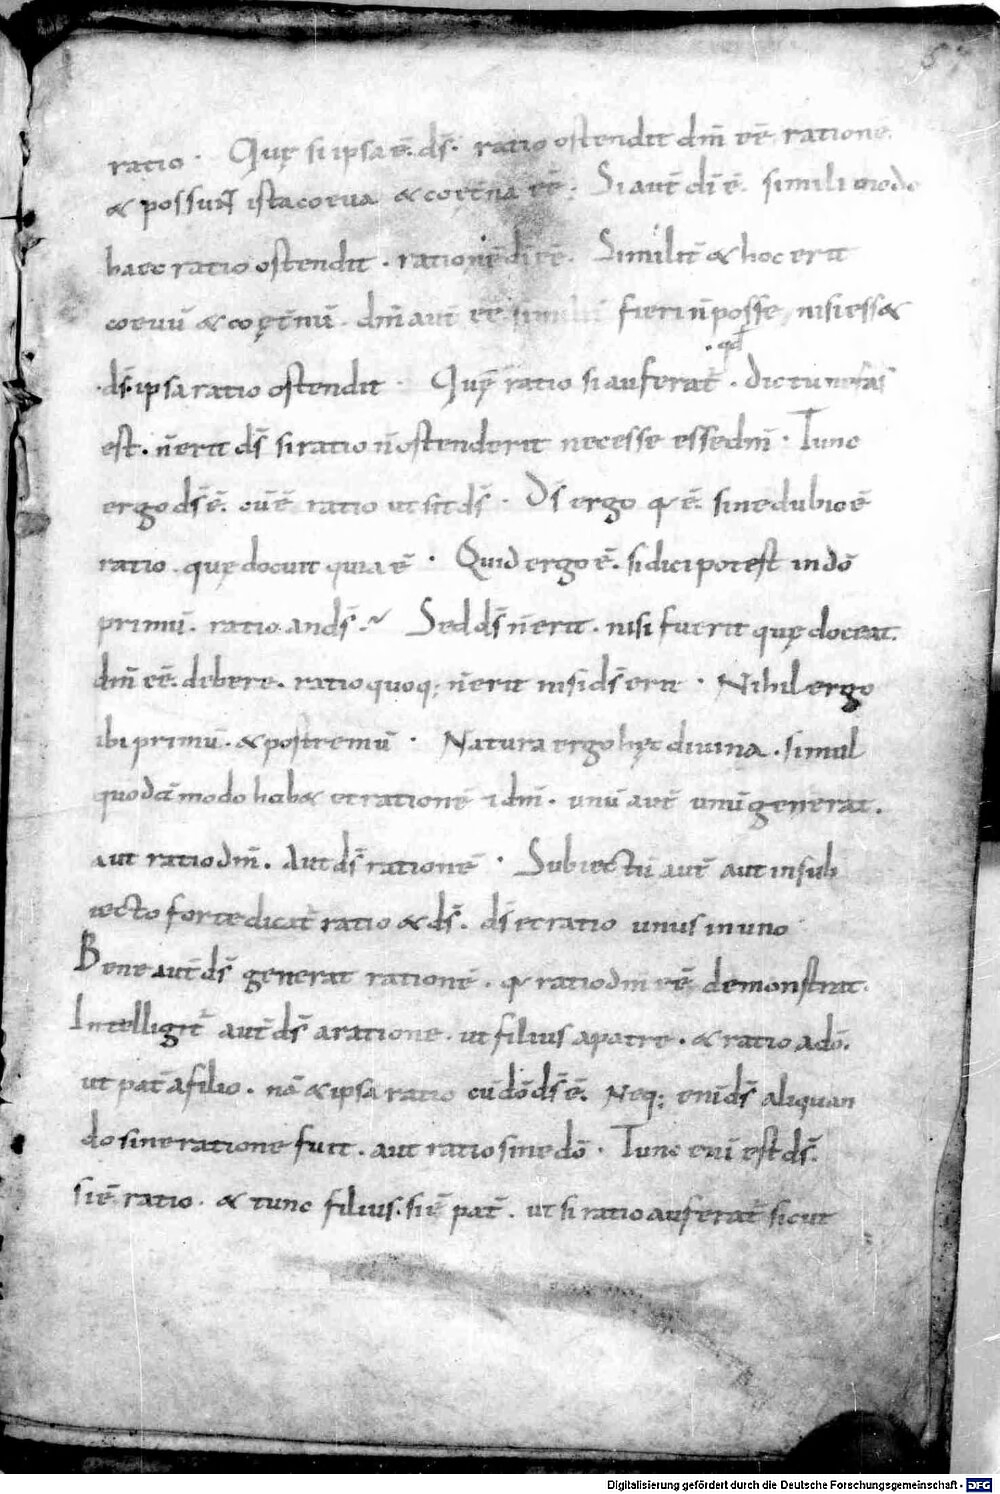 67
ratio · Quę si ipsa ē. ds̄. ratio ostendit dm̄ eē ratione.
& possunt ista coeua & coęt̄na eē. Si aut̄ di ē. simili modo
haec ratio ostendit. rationē di eē. Similit̄ & hoc erit
coeuū & coęt̄nū. dm̄ aut̄ eē fieri n̄ posse, nisi ess&
qd̄
ds̄. ipsa ratio ostendit · Quę ratio si auferat̄. dictu nefas
est. n̄ erit ds̄ si ratio n̄ ostenderit necesse esse dm̄ · Tunc
ergo ds̄ ē. cū ē ratio ut sit ds̄ · Ds̄ ergo q; ē. sine dubio ē
ratio. quę docuit quia ē · Quid ergo ē. si dici potest in dō
primū. ratio. an ds̄.~ Sed ds̄ n̄ erit. nisi fuerit quę doceat.
dm̄ eē. debere. ratio quoq; n̄ erit nisi ds̄ erit · Nihil ergo
ibi primū. & postremū · Natura ergo hęc diuina. simul
quodā modo hab& et rationē & dm̄. unū aut̄ unū generat.
aut ratio dm̄. Aut ds̄ rationē · Subiectū aut̄ aut in sub
iecto forte dicat̄ ratio & ds̄. ds̄ et ratio unus in uno
Bene aut̄ ds̄ generat rationē. q; ratio dm̄ eē demonstrat.
Intelligit̄ aut̄ ds̄ a ratione. ut filius a patre. & ratio a dō.
ut pat̄ a filio. nā & ipsa ratio cū dō ds̄ ē. Neq; enī ds̄ aliquan
do sine ratione fuit. aut ratio sine dō · Tunc enī est ds̄.
si ē ratio. & tunc filius. si ē pat̄. ut si ratio auferat̄ sicut
Digitalisierung gefördert durch die Deutsche Forschungsgemeinschaft - DFG